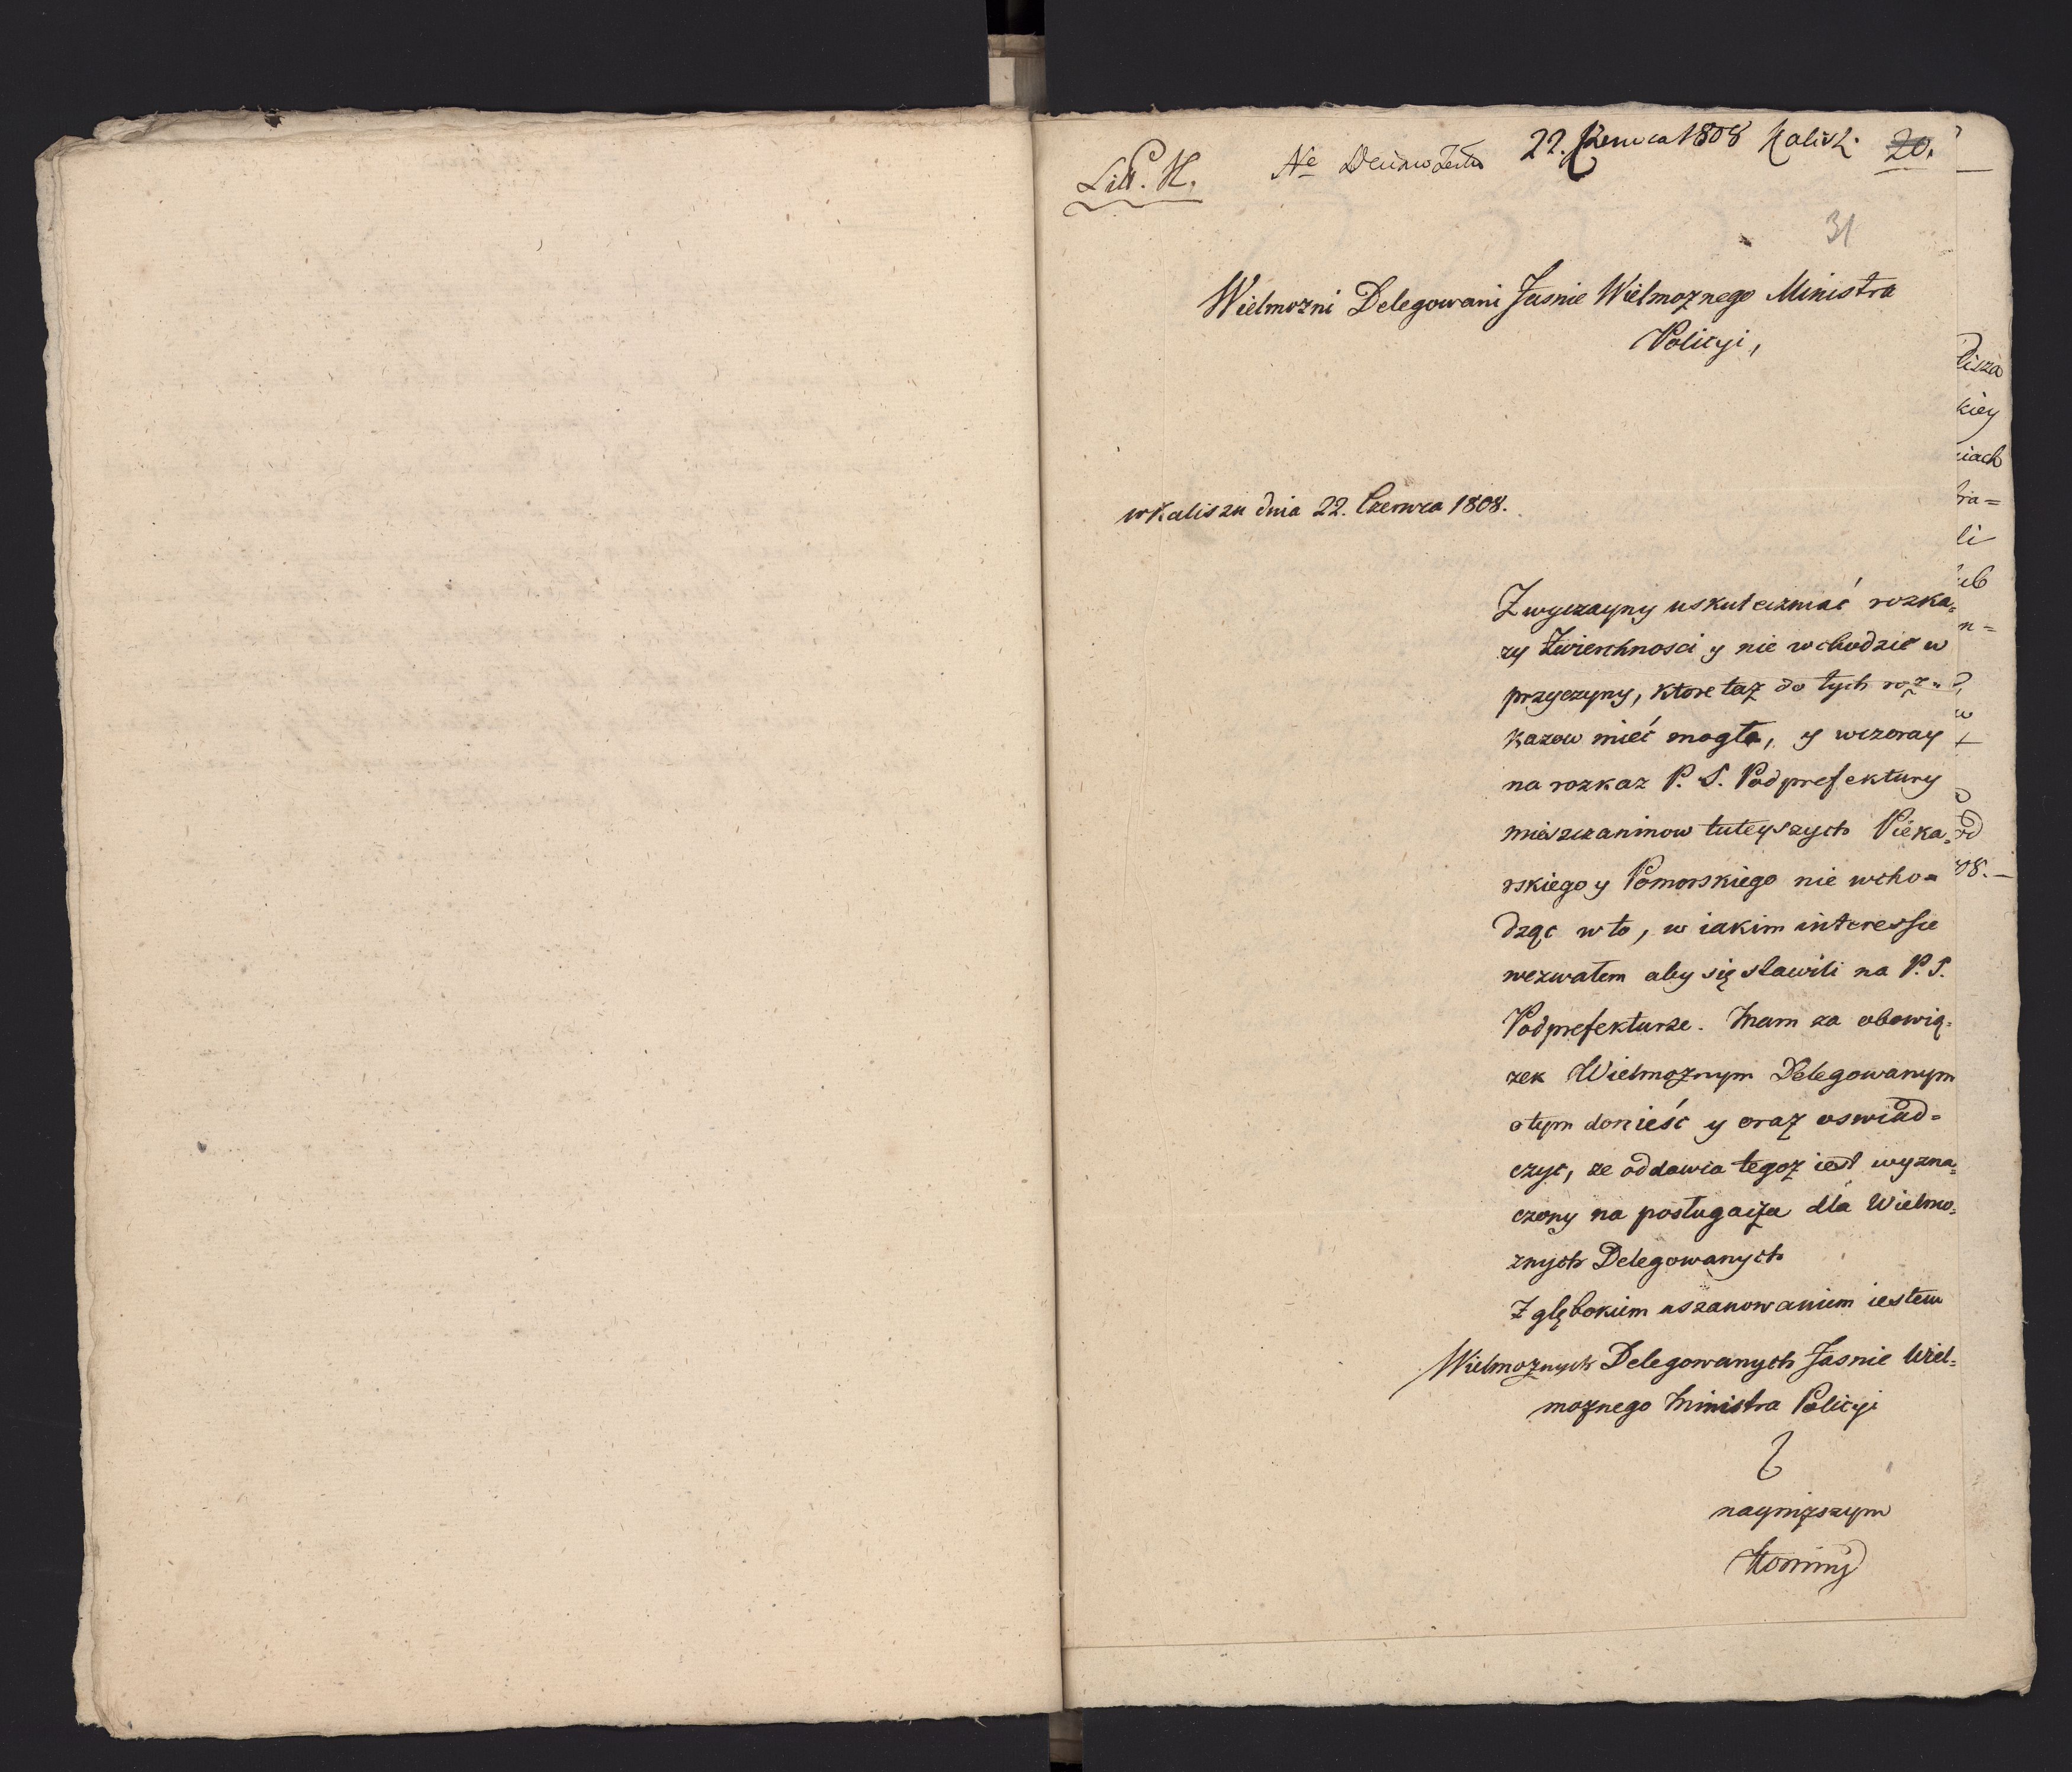 Litt. H.
No 22. Czerwca 1808 Kalisz. 20.
31
Wielmozni Delegowani Jasnie Wielmoznego Ministra
Policyi,
w Kaliszu dnia 22. Czerwca 1808.
Zwyczayny uskuteczniać rozka=
zy Zwierzchnosci y nie wchodzić w
przyczyny, ktore taz do tych roz=
kazow mieć mogła, y wczoray
na rozkaz P. S. Podprefektury
mieszczaninow tuteyszych Pieka=
rskiego y Pomorskiego nie wcho=
dząc w to, w iakim interessie
wezwałem aby się stawili na P. S.
Podprefekturze. Mam za obowią=
zek Wielmoznym Delegowanym
o tym donieść y oraz oswiad=
czyć, ze oddawia tegoz iest wyzna=
czony na posługacza dla Wielmo=
znych Delegowanych
Z głębokiem uszanowaniem iestem
Wielmoznych Delegowanych Jasnie Wiel=
moznego Ministra Policyi
naynizszym
lisza
kiey
iach
li
08.